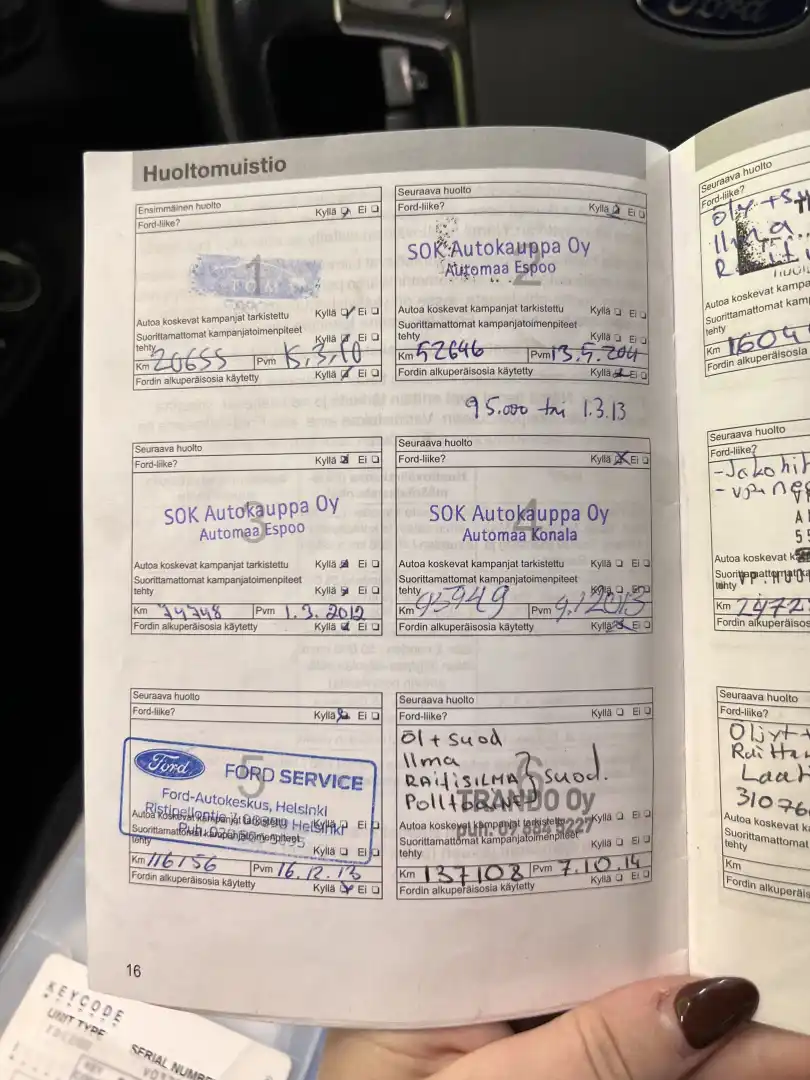 Ford
Huoltomuistio
Ensimmäinen huolto
Ford-liike? Kyllä Ei
1
Autoa koskevat kampanjat tarkistettu Kyllä Ei
Suorittamattomat kampanjatoimenpiteet
tehty Kyllä Ei
Km 20655 Pvm 15.3.10
Fordin alkuperäisosia käytetty Kyllä Ei
Seuraava huolto
Ford-liike? Kyllä Ei
2
SOK Autokauppa Oy
Automaa Espoo
Autoa koskevat kampanjat tarkistettu Kyllä Ei
Suorittamattomat kampanjatoimenpiteet
tehty Kyllä Ei
Km 52646 Pvm 13.5.201
Fordin alkuperäisosia käytetty Kyllä Ei
95.000 tai 1.3.13
Seuraava huolto
Ford-liike? Kyllä Ei
3
SOK Autokauppa Oy
Automaa Espoo
Autoa koskevat kampanjat tarkistettu Kyllä Ei
Suorittamattomat kampanjatoimenpiteet
tehty Kyllä Ei
Km 74748 Pvm 1.3.2012
Fordin alkuperäisosia käytetty Kyllä Ei
Seuraava huolto
Ford-liike? Kyllä Ei
4
SOK Autokauppa Oy
Automaa Konala
Autoa koskevat kampanjat tarkistettu Kyllä Ei
Suorittamattomat kampanjatoimenpiteet
tehty Kyllä Ei
Km 95949 Pvm 9.1.2013
Fordin alkuperäisosia käytetty Kyllä Ei
Seuraava huolto
Ford-liike? Kyllä Ei
5
Ford FORD SERVICE
Ford-Autokeskus, Helsinki
Autoa koskevat kampanjat tarkistettu Kyllä Ei
Suorittamattomat kampanjatoimenpiteet
tehty Kyllä Ei
Km 116156 Pvm 16.12.13
Fordin alkuperäisosia käytetty Kyllä Ei
Seuraava huolto
Ford-liike? Kyllä Ei
6
öl + suod
Ilma
RAITISILMA suod.
TRANDO Oy
puh. 09 884 9227
Autoa koskevat kampanjat tarkistettu Kyllä Ei
Suorittamattomat kampanjatoimenpiteet
tehty Kyllä Ei
Km 137108 Pvm 7.10.14
Fordin alkuperäisosia käytetty Kyllä Ei
16
Seuraava huolto
Ford-liike?
Ilma
Autoa koskevat kampa
Suorittamattomat kam
tehty
Km 1604
Fordin alkuperäisos
Seuraava huolto
Ford-liike?
Autoa koskevat k
tehty
Km 2472
Fordin alkuperäisos
Seuraava huolto
Ford-liike?
Öljyt +
31076
Autoa koskevat kampa
Suorittamattomat
tehty
Km
Fordin alkuperäis
KEYCODE
UNIT TYPE
SERIAL NUMB
KEY